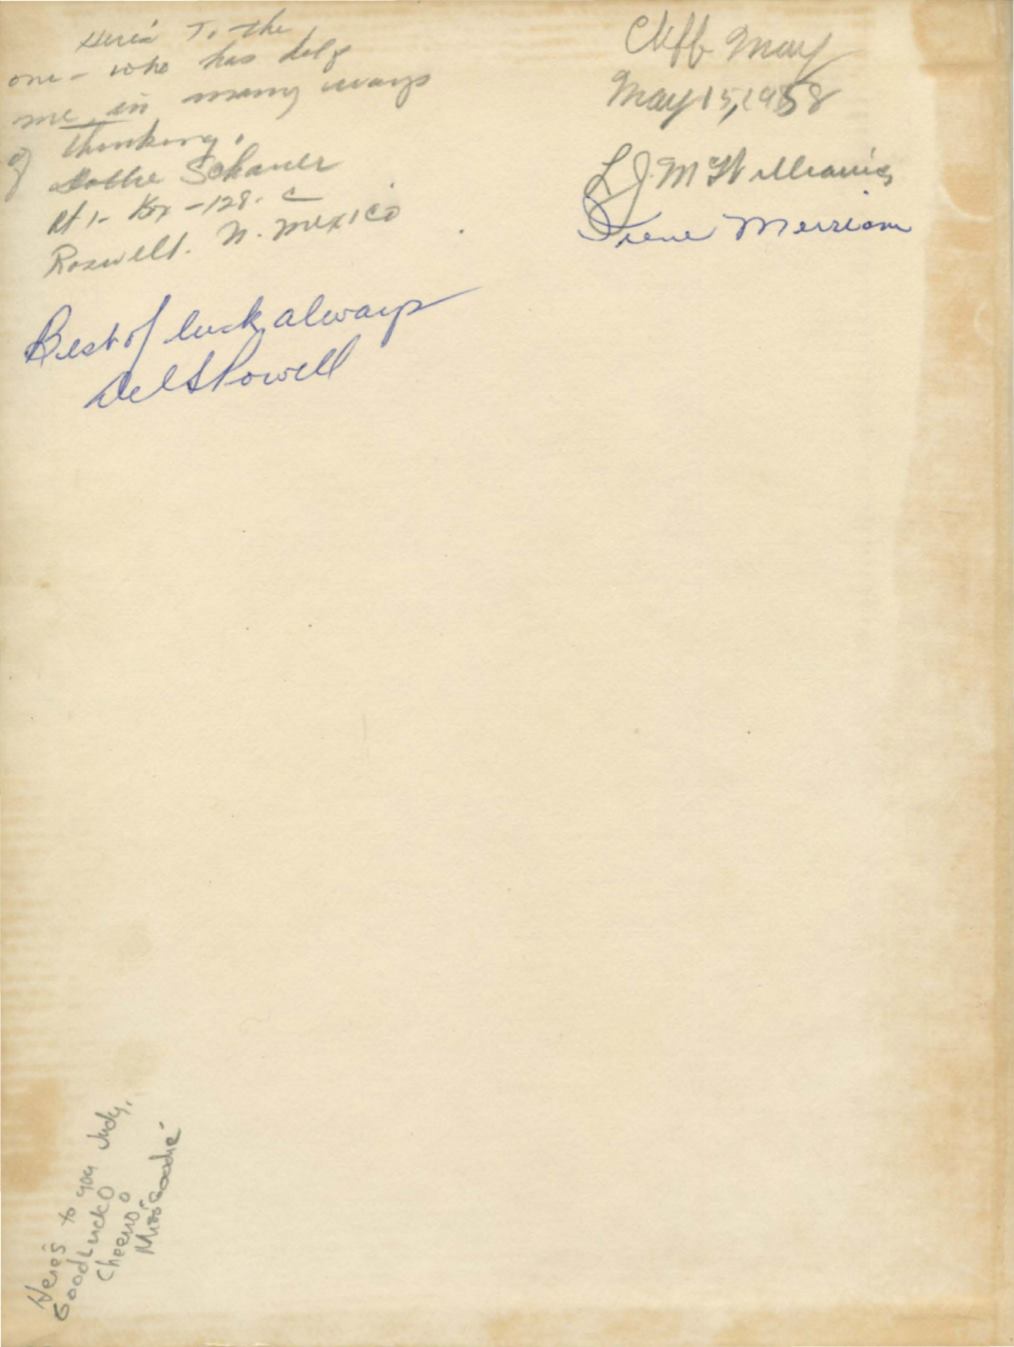 Here's To the
one - who has help
me in many ways
of thinking.
Schauer
Rt 1 - Box - 128. C
Roswell. N. Mexico
Best of luck always
Del S Powell
Cliff May
May 15, 1958
L J McWilliams
Irene Merriam
Here's to you Judy,
Good Luck
Cheerio
Miss Goodie